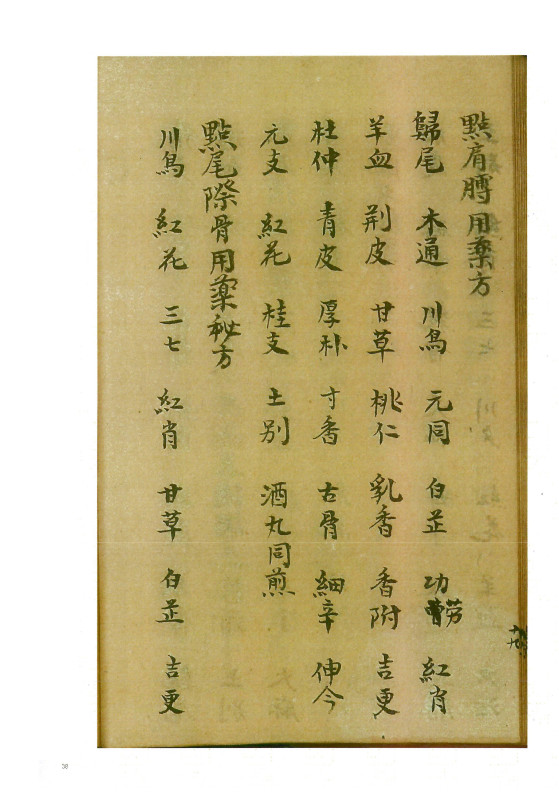 點肩膊用藥方
歸尾 木通 川烏 元同 白芷 功勞 紅肖
羊血 荆皮 甘草 桃仁 乳香 香附 吉更
杜仲 青皮 厚朴 寸香 古骨 細辛 伸今
元支 紅花 桂支 土別 酒丸同煎
點尾際骨用藥秘方
川烏 紅花 三七 紅肖 甘草 白芷 吉更